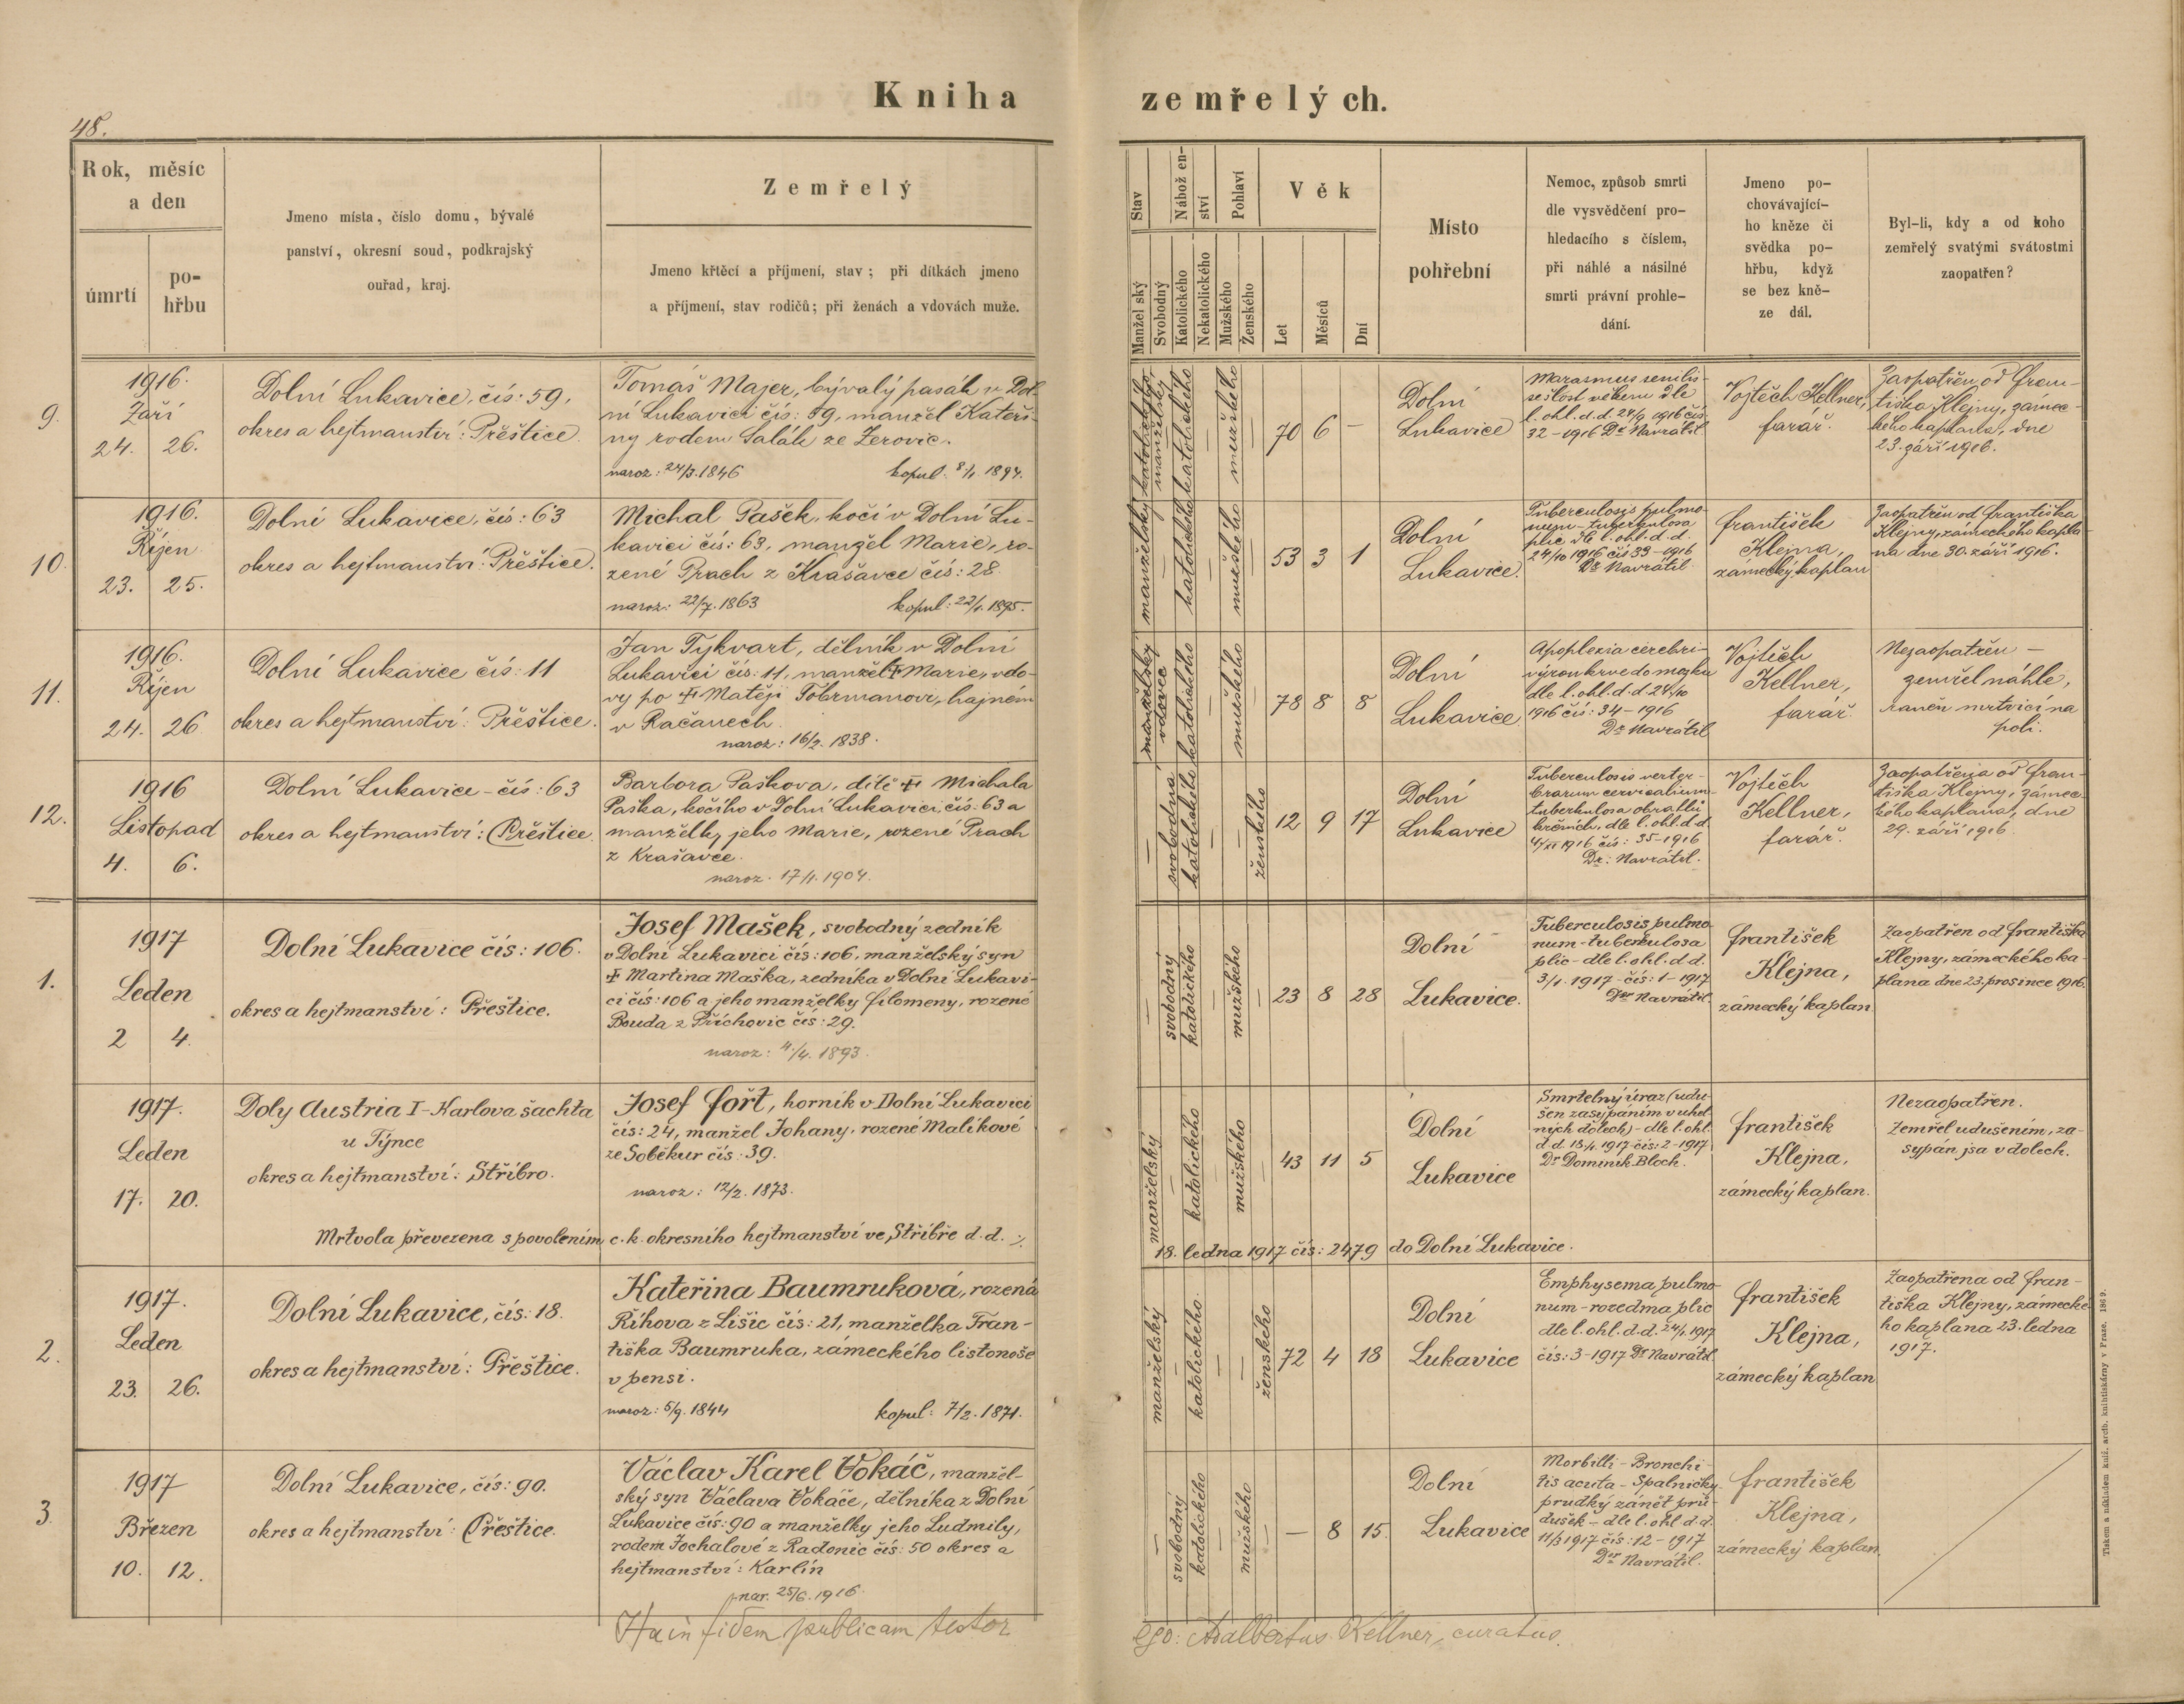 48.
Kniha zemřelých.
Rok, měsíc
a den
úmrtí
po-
hřbu
Jmeno místa, číslo domu, bývalé
panství, okresní soud, podkrajský
ouřad, kraj.
Zemřelý
Jmeno křtěcí a příjmení, stav; při dítkách jmeno
a příjmení, stav rodičů; při ženách a vdovách muže.
Stav
Manželský
Svobodný
Nábožen-
ství
Katolického
Nekatolického
Pohlaví
Mužského
Ženského
Věk
Let
Měsíců
Dní
Místo
pohřební
Nemoc, způsob smrti
dle vysvědčení pro-
hledacího s číslem,
při náhlé a násilné
smrti právní prohle-
dání.
Jmeno po-
chovávající-
ho kněze či
svědka po-
hřbu, když
se bez kně-
ze dál.
Byl-li, kdy a od koho
zemřelý svatými svátostmi
zaopatřen?
9.
1916.
Září
24. 26.
Dolní Lukavice, čís: 59,
okres a hejtmanství: Přeštice.
Tomáš Majer, bývalý pasák v Dol-
ní Lukavici čís: 59, manžel Kateři-
ny rodem Salák ze Žerovic.
naroz: 24/3. 1846 kopul. 8/1 1894.
manželský
katolického
mužského
70 6 —
Dolní
Lukavice
Marasmus senilis -
sešlost věkem dle
l. ohl. d. d. 24/9 1916 čís
32 - 1916 Dr Navrátil
Vojtěch Kellner,
farář.
Zaopatřen od Fran-
tiška Klejny, zámec-
kého kaplana, dne
23. září 1916.
10.
1916.
Říjen
23. 25.
Dolní Lukavice, čís: 63
okres a hejtmanství: Přeštice.
Michal Pašek, kočí v Dolní Lu-
kavici čís: 63, manžel Marie, ro-
zené Prach z Krašavce čís: 28.
naroz: 22/7. 1863 kopul: 22/1. 1895.
manželský
katolického
mužského
53 3 1
Dolní
Lukavice.
Tuberculosis pulmo-
num - tuberkulosa
plic dle l. ohl. d. d.
24/10 1916 čís 33 - 1916
Dr Navrátil
František
Klejna,
zámecký kaplan
Zaopatřen od Františka
Klejny, zámeckého kapla-
na dne 30. září 1916.
11.
1916.
Říjen
24. 26
Dolní Lukavice čís: 11
okres a hejtmanství: Přeštice.
Jan Tykvart, dělník v Dolní
Lukavici čís: 11, manžel † Marie, vdo-
vy po † Matěji Fobrmanovi, hajném
v Račanech.
naroz: 16/2. 1838.
manželský
vdovec
katolického
mužského
78 8 8
Dolní
Lukavice
Apoplexia cerebri -
výron krve do mozku
dle l. ohl. d. d. 24/10
1916 čís: 34 - 1916
Dr Navrátil
Vojtěch
Kellner,
farář
Nezaopatřen —
zemřel náhle,
raněn mrtvicí na
poli.
12.
1916
Listopad
4. 6.
Dolní Lukavice - čís: 63
okres a hejtmanství: Přeštice.
Barbora Paškova, dítě † Michala
Paška, kočího v Dolní Lukavici čís: 63 a
manželky jeho Marie, rozené Prach
z Krašavce.
naroz. 17/1. 1904.
svobodná
katolického
ženského
12 9 17
Dolní
Lukavice
Tuberculosis verter-
brarum cervicalium -
tuberkulosa obratlů
krčních, dle l. ohl. d. d.
4/XI 1916 čís: 35 - 1916
Dr: Navrátil.
Vojtěch
Kellner,
farář.
Zaopatřena od Fran-
tiška Klejny, zámec-
kého kaplana, dne
29. září 1916.
1.
1917
Leden
2 4.
Dolní Lukavice čís: 106.
okres a hejtmanství: Přeštice.
Josef Mašek, svobodný zedník
v Dolní Lukavici čís: 106, manželský syn
† Martina Maška, zedníka v Dolní Lukavi-
ci čís: 106 a jeho manželky Filomeny, rozené
Bouda z Příchovic čís: 29.
naroz: 4./4. 1893.
svobodný
katolického
mužského
23 8 28
Dolní
Lukavice.
Tuberculosis pulmo-
num - tuberkulosa
plic - dle l. ohl. d. d.
3/1. 1917 - čís: 1 - 1917
Dr Navrátil.
František
Klejna,
zámecký kaplan
Zaopatřen od Františka
Klejny, zámeckého ka-
plana dne 23. prosince 1916.
1917.
Leden
17. 20.
Doly Austria I - Karlova šachta
u Týnce
okres a hejtmanství: Stříbro.
Josef Fořt, horník v Dolní Lukavici
čís: 24, manžel Johany, rozené Malíkové
ze Soběkur čís: 39.
naroz: 12/2. 1873.
manželský
katolického
mužského
43 11 5
Dolní
Lukavice
Smrtelný úraz (udu-
šen zasypáním v uhel-
ných dolech) - dle l. ohl.
d. d. 18/1. 1917 čís: 2 - 1917
Dr Dominik Bloch.
František
Klejna,
zámecký kaplan.
Nezaopatřen.
Zemřel udušením, za-
sypán jsa v dolech.
Mrtvola převezena s povolením c. k. okresního hejtmanství ve Stříbře d. d. ./.
18. ledna 1917 čís: 2479 do Dolní Lukavice.
2.
1917.
Leden
23. 26.
Dolní Lukavice, čís: 18.
okres a hejtmanství: Přeštice.
Kateřina Baumruková, rozená
Říhova z Lišic čís: 21, manželka Fran-
tiška Baumruka, zámeckého listonoše
v pensi.
naroz: 5/9. 1844 kopul: 7/2. 1871.
manželský
katolického
ženského
72 4 18
Dolní
Lukavice
Emphysema pulmo-
num - rozedma plic
dle l. ohl. d. d. 24/1. 1917
čís: 3 - 1917 Dr Navrátil.
František
Klejna,
zámecký kaplan
Zaopatřena od Fran-
tiška Klejny, zámecké-
ho kaplana 23. ledna
1917.
3.
1917
Březen
10. 12.
Dolní Lukavice, čís: 90.
okres a hejtmanství: Přeštice.
Václav Karel Vokáč, manžel-
ský syn Václava Vokáče, dělníka z Dolní
Lukavice čís: 90 a manželky jeho Ludmily,
rodem Jochalové z Radonic čís: 50 okres a
hejtmanství: Karlín
nar. 25/6. 1916.
svobodný
katolického
mužského
— 8 15.
Dolní
Lukavice
Morbilli - Bronchi-
tis acuta - Spalničky
prudký zánět prů-
dušek - dle l. ohl. d. d.
11/3 1917 čís: 12 - 1917
Dr Navrátil.
František
Klejna,
zámecký kaplan.
fidem publicam testor
ego: Adalbertus Kellner, curatus.
Tiskem a nákladem kníž. arcib. knihtiskárny v Praze. 1869.